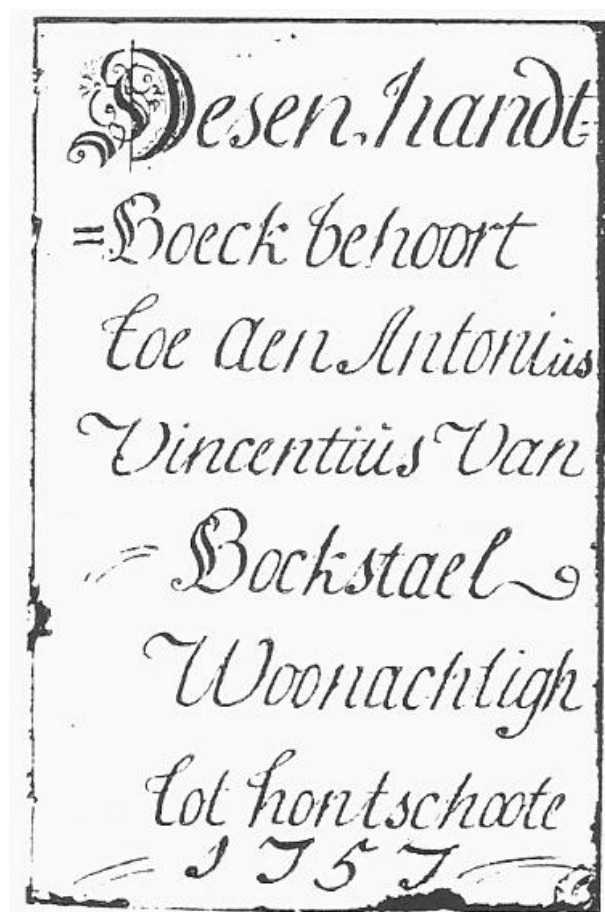 Desen handt=
=Boeck behoort
toe aen Antoniüs
Vincentiüs Van
Bockstael
Woonachtigh
tot hontschoote
1757